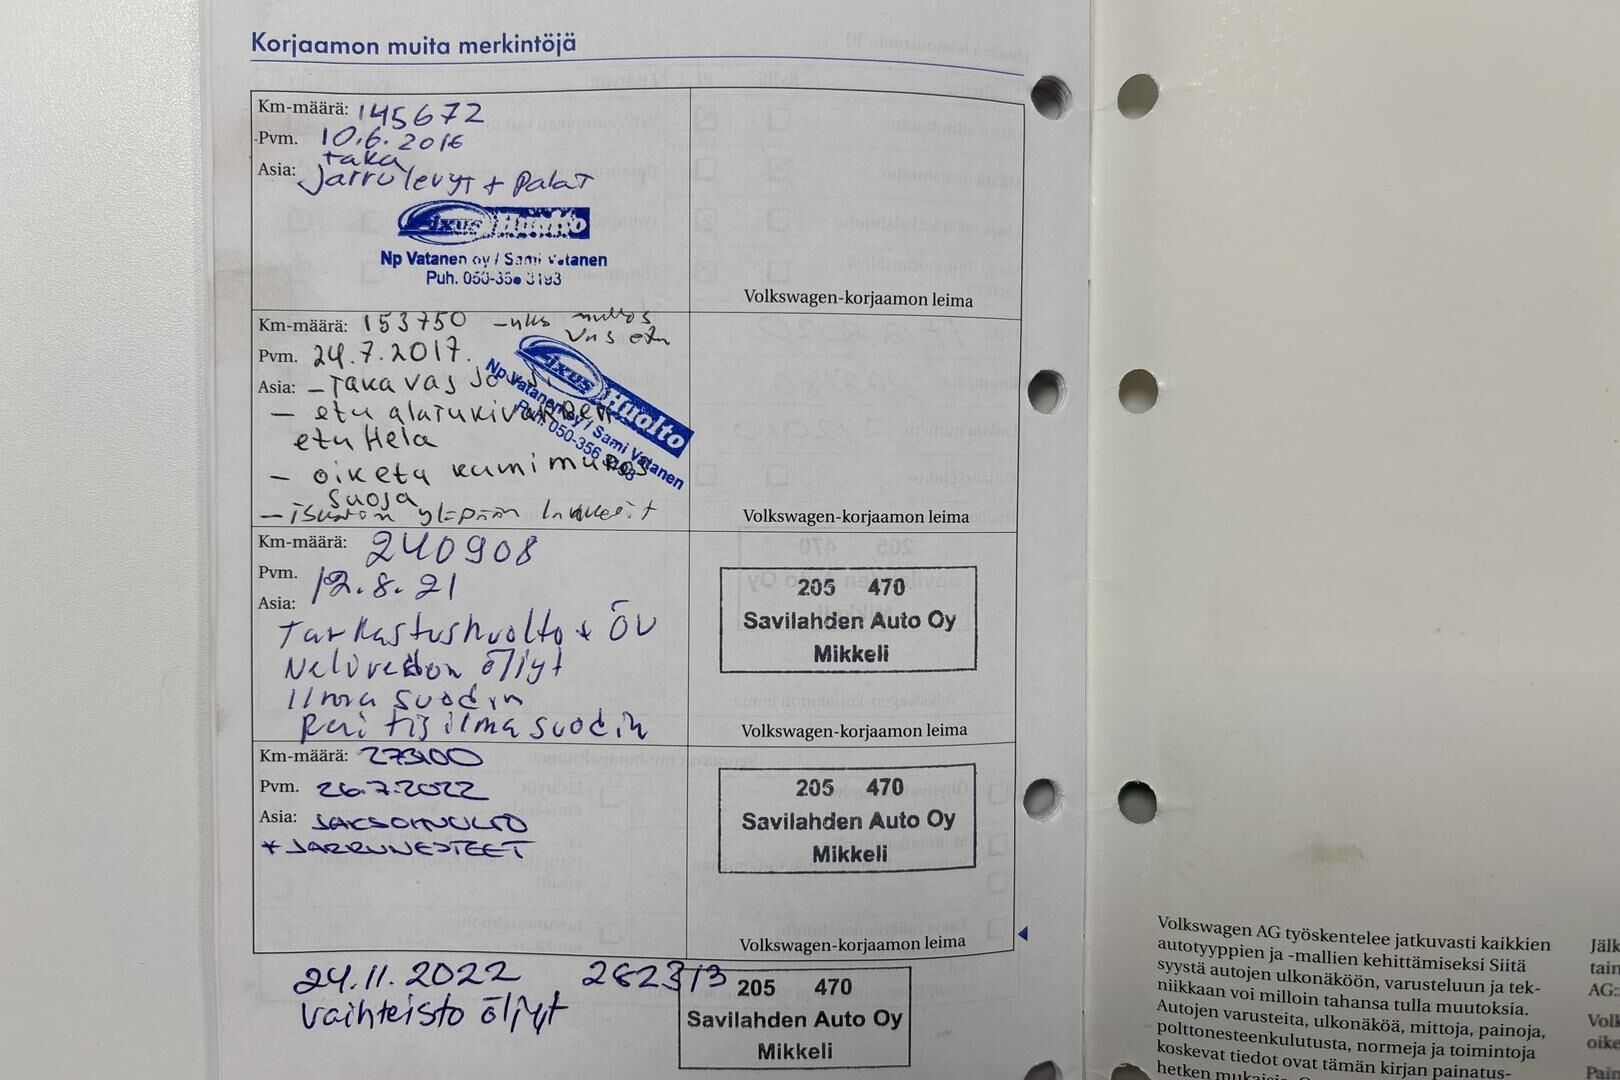 Korjaamon muita merkintöjä
Km-määrä: 145672
Pvm. 10.6.2016
taka
Asia: Jarrulevyt + Palat
Fixus Huolto
Np Vatanen oy / Sami Vatanen
Puh. 050-356 3193
Volkswagen-korjaamon leima
Km-määrä: 153750
Pvm. 24.7.2017.
Asia: - Taka vas
- etu alatukivarren
etu Hela
- oiketa kumi
suoja
Fixus Huolto
Np Vatanen oy / Sami Vatanen
Puh. 050-356 3193
Volkswagen-korjaamon leima
Km-määrä: 240908
Pvm. 12.8.21
Asia:
Tarkastushuolto + ÖV
Nelivedon öljyt
Ilma suodin
Raitisilma suodin
205 470
Savilahden Auto Oy
Mikkeli
Volkswagen-korjaamon leima
Km-määrä: 273100
Pvm. 26.7.2022
Asia: JAKSOHUOLTO
+ JARRUNESTEET
205 470
Savilahden Auto Oy
Mikkeli
Volkswagen-korjaamon leima
24.11.2022 282313
Vaihteisto öljyt
205 470
Savilahden Auto Oy
Mikkeli
Volkswagen AG työskentelee jatkuvasti kaikkien
autotyyppien ja -mallien kehittämiseksi Siitä
syystä autojen ulkonäköön, varusteluun ja tek-
niikkaan voi milloin tahansa tulla muutoksia.
Autojen varusteita, ulkonäköä, mittoja, painoja,
polttonesteenkulutusta, normeja ja toimintoja
koskevat tiedot ovat tämän kirjan painatus-
hetken mukaisia.
Jälk
tain
AG:
Volk
oike
Pain